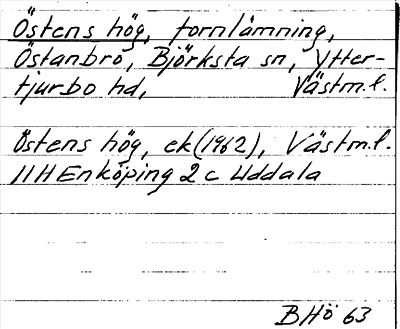 Östens hög, fornlämning,
Östanbro, Björksta sn, Ytter-
tjurbo hd, Västm.l.
Östens hög, ek (1962), Västm.l.
11H Enköping 2 c Uddala
BHö 63